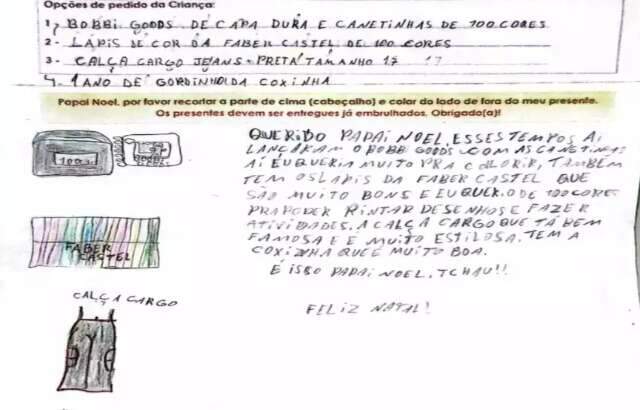 Opções de pedido da Criança:
1, BOBBI GOODS DE CAPA DURA E CANETINHAS DE 100 CORES
2 - LÁPIS DE COR DA FABER CASTEL DE 100 CORES
3 - CALÇA CARGO JEANS - PRETA TAMANHO 17 17
4. 1 ANO DE GORDINHO DA COXINHA
Papai Noel, por favor recortar a parte de cima (cabeçalho) e colar do lado de fora do meu presente.
Os presentes devem ser entregues já embrulhados. Obrigado(a)!
QUERIDO PAPAI NOEL, ESSES TEMPOS AI
LANÇARAM O BOBB GOODS COM AS CANETINHAS
AÍ EU QUERIA MUITO PRA COLORIR, TAMBÉM
TEM OS LÁPIS DA FABER CASTEL QUE
SÃO MUITO BONS E EU QUERO O DE 100 CORES
PRA PODER PINTAR DESENHOS E FAZER
ATIVIDADES, A CALÇA CARGO QUE TÁ BEM
FAMOSA E É MUITO ESTILOSA. TEM A
COXINHA QUE É MUITO BOA.
É ISSO PAPAI NOEL, TCHAU!!
FELIZ NATAL!
100
FABER
CASTEL
CALÇA CARGO